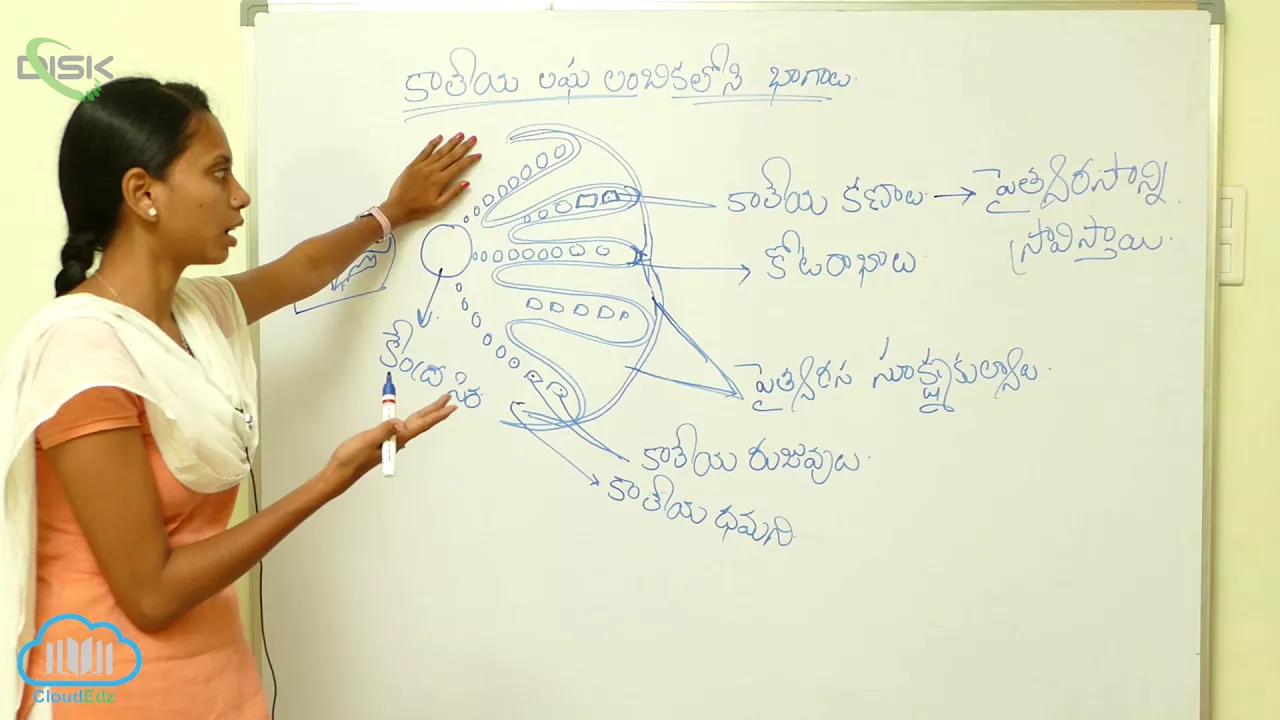 DISK
కాలేయ లఘు లంబికలోని భాగాలు
కాలేయ కణాలు → పైత్యరసాన్ని
స్రావిస్తాయి.
కోటరాభాలు
కేంద్ర సిర
పైత్యరస సూక్ష్మకుల్యాలు
కాలేయ రుజువులు
కాలేయ ధమని
CloudEdz